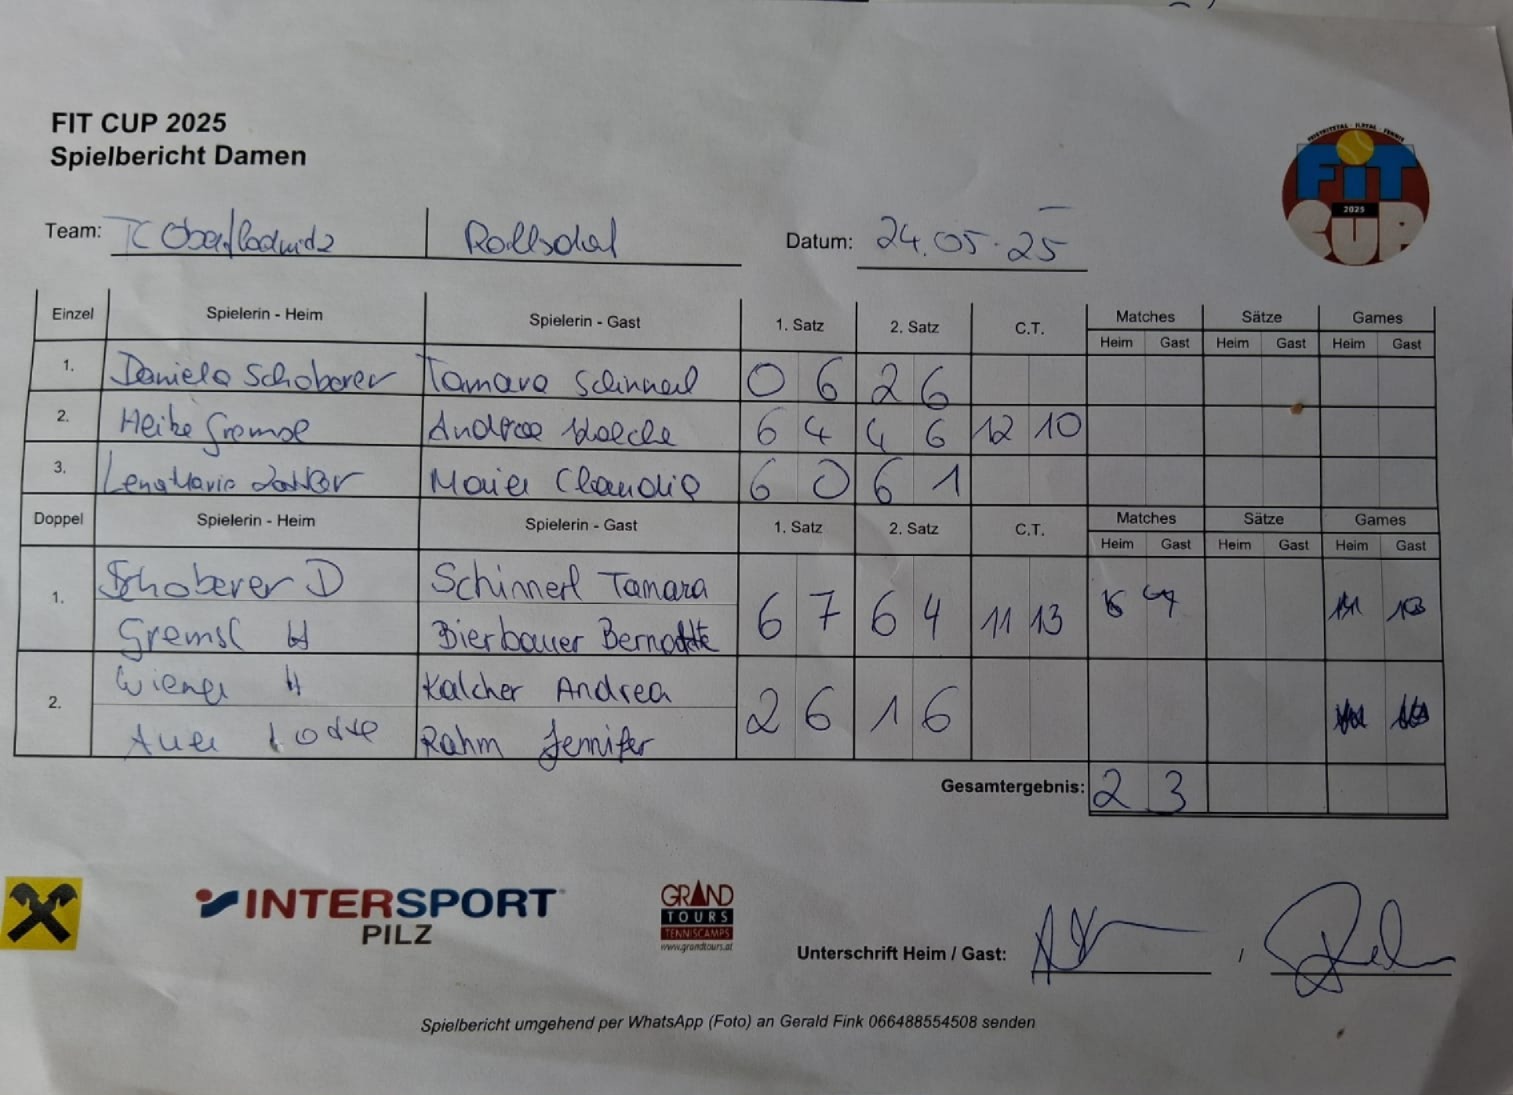 FIT CUP 2025
Spielbericht Damen
FIT
2025
CUP
Team: TC Oberfladnitz Rollsdorf Datum: 24.05.25
Einzel Spielerin - Heim Spielerin - Gast 1. Satz 2. Satz C.T. Matches Sätze Games
Heim Gast Heim Gast Heim Gast
1. Daniela Schoberer Tamara Schinnerl 0 6 2 6
2. Heike Gremsl Andrea 6 4 4 6 12 10
3. Lena Marie Maier Claudia 6 0 6 1
Doppel Spielerin - Heim Spielerin - Gast 1. Satz 2. Satz C.T. Matches Sätze Games
Heim Gast Heim Gast Heim Gast
1. Schoberer D Schinnerl Tamara 6 7 6 4 11 13
Gremsl H Bierbauer Bernadette
2. Wiener H Kalcher Andrea 2 6 1 6
Auer Rahm Jennifer
Gesamtergebnis: 2 3
INTERSPORT
PILZ
GRAND
TOURS
TENNISCAMPS
www.grandtours.at
Unterschrift Heim / Gast: ,
Spielbericht umgehend per WhatsApp (Foto) an Gerald Fink 066488554508 senden